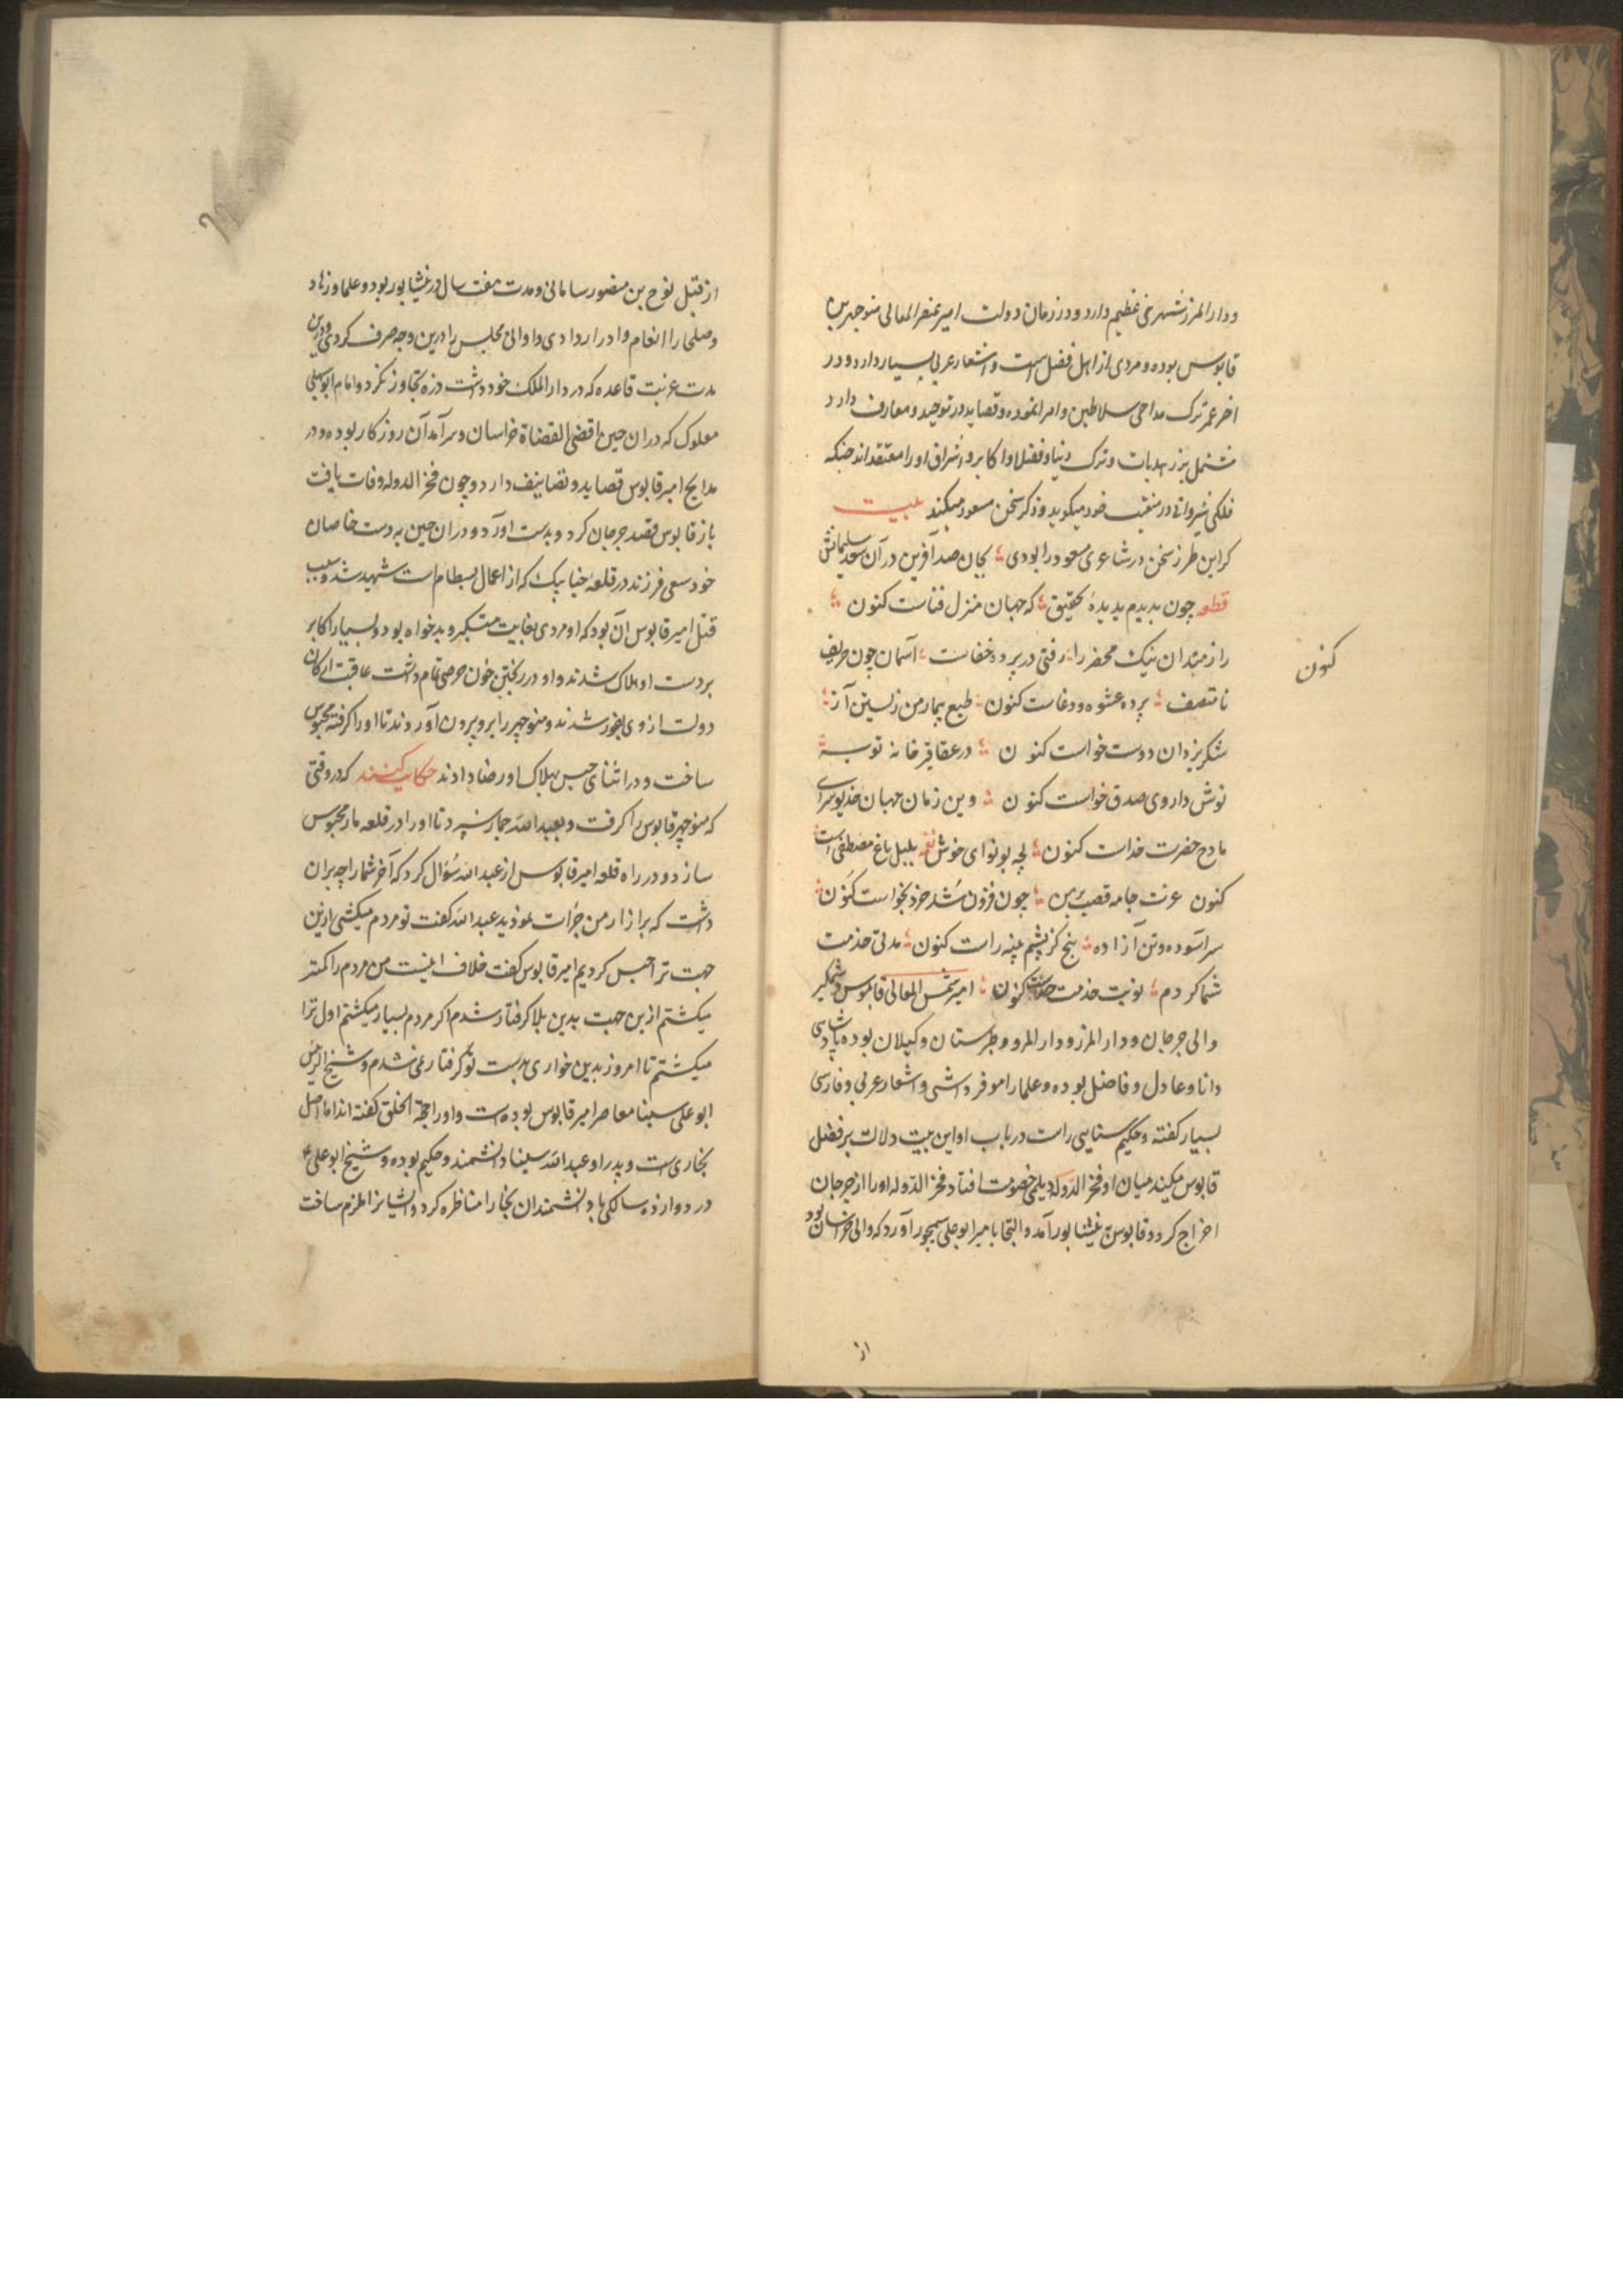 ودار المرز شهرتی عظیم دارد ودر زمان دولت امیر عنصر المعالی منوچهر بن
قابوس بوده و مردی از اهل فضل است و اشعار عربی بسیار دارد و در
اخر عمر ترک مداحی سلاطین و امرا نموده و قصاید در توحید و معارف دارد
مشتمل بزهدیات و ترک دنیا و فضلا و اکابر و اشراف او را معتقد اند چنانکه
فلکی شیروانی در منقبت خود میگوید و ذکر سخن مسعود میکند بیت
کر این طرز سخن در شاعری مسعود را بودی بجان صد آفرین در آن سعد سلمانش
قطعه چون بدیدم بدیدهٔ تحقیق که جهان منزل فناست کنون
راز مردان نیک محضر را رفتی در پرده خفاست آسمان چون حریف
کنون
نا منصف بر ده عشوه و دغاست کنون طبع بیمار من ز بستن آز
شکر یزدان دوست خواست کنون در عقاقیر خانه توبه
نوش داروی صدق خواست کنون وین زمان جهان خدیو سرای
مادح حضرت خداست کنون لهجه بو نوای خوش نغمه بلبل باغ مصطفی است
کنون عزت جامه قصب بر من چون فزون شد خرد بخواست کنون
سر آسوده و تن آزاده پنج کز پشم پنبه راست کنون مدتی خدمت
شما کردم نوبت خدمت خداست کنون امیر شمس المعالی قابوس وشمگیر
والی جرجان و دار المرز و دار المرو و طبرستان و کیلان بوده پادشاهی
دانا و عادل و فاضل بوده و علما را موقر داشتی و اشعار عربی و فارسی
بسیار کفته و حکیم سنایی راست در باب او این بیت دلالت بر فضل
قابوس میکند میان او فخر الدوله دیلمی خصومت افتاد و فخر الدوله او را از جرجان
اخراج کرد و قابوس به نیشابور آمد و التجا بامیر ابو علی سیمجور آورد که والی خراسان بود
از
از قبل نوح بن منصور سامانی و مدت هفت سال در نیشابور بود و علما و زهاد
وصلحا را انعام وادرار دادی و اوالی مجلس را درین وجه صرف کردی و درین
مدت عزبت قاعده که در دار الملک خود داشت ذره تجاوز نکرد و امام ابو سهل
صعلوک که دران حین اقضی القضاة خراسان و سرآمد آن روزکار بوده و در
مدایح امیر قابوس قصاید و تصانیف دارد و چون فخر الدوله وفات یافت
باز قابوس قصد جرجان کرد و بدست اورد و دران حین بدست خاصان
خود بسعی فرزند در قلعهٔ جناشک که از اعمال بسطام است شهید شد و سبب
قتل امیر قابوس آن بود که او مردی بغایت متکبر و بدخواه بود و بسیار اکابر
بر دست او هلاک شدند و او در ریختن خون حرصی تمام داشت عاقبت ارکان
دولت ازوی نفور شدند و منوچهر را برو بیرون آوردند تا او را کرفته محبوس
ساخت و در اثنای حبس بهلاک او رضا دادند حکایت کنند که در وقتی
که منوچهر قابوس را کرفت و بعبد الله جماز سپرد تا او را در قلعه ما محبوس
سازد و در راه قلعه امیر قابوس از عبد الله سؤال کرد که آخر شما را چه بران
داشت که بر ازار من جرات نمودید عبد الله کفت تو مردم میکشتی ازین
جهت ترا حبس کردیم امیر قابوس کفت خلاف اینست من مردم را کمتر
میکشتم ازین جهت بدین بلا کرفتار شدم اکر مردم بسیار میکشتم اول ترا
میکشتم تا امروز بدین خواری بدست تو کرفتار نمی شدم و شیخ الرئیس
ابو علی سینا معاصر امیر قابوس بوده است و او را حجة الخلق کفته اند اما اصل
بخاری است و پدر او عبد الله سینا دانشمند و حکیم بوده و شیخ ابو علی
در دوازده سالکی با دانشمندان بخارا مناظره کرد و ایشانرا ملزم ساخت